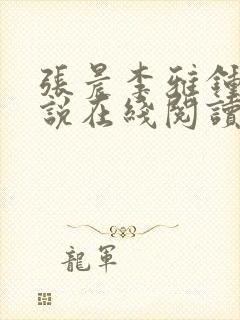 張晨李雅鍾
說在綫閱讀
龍軍